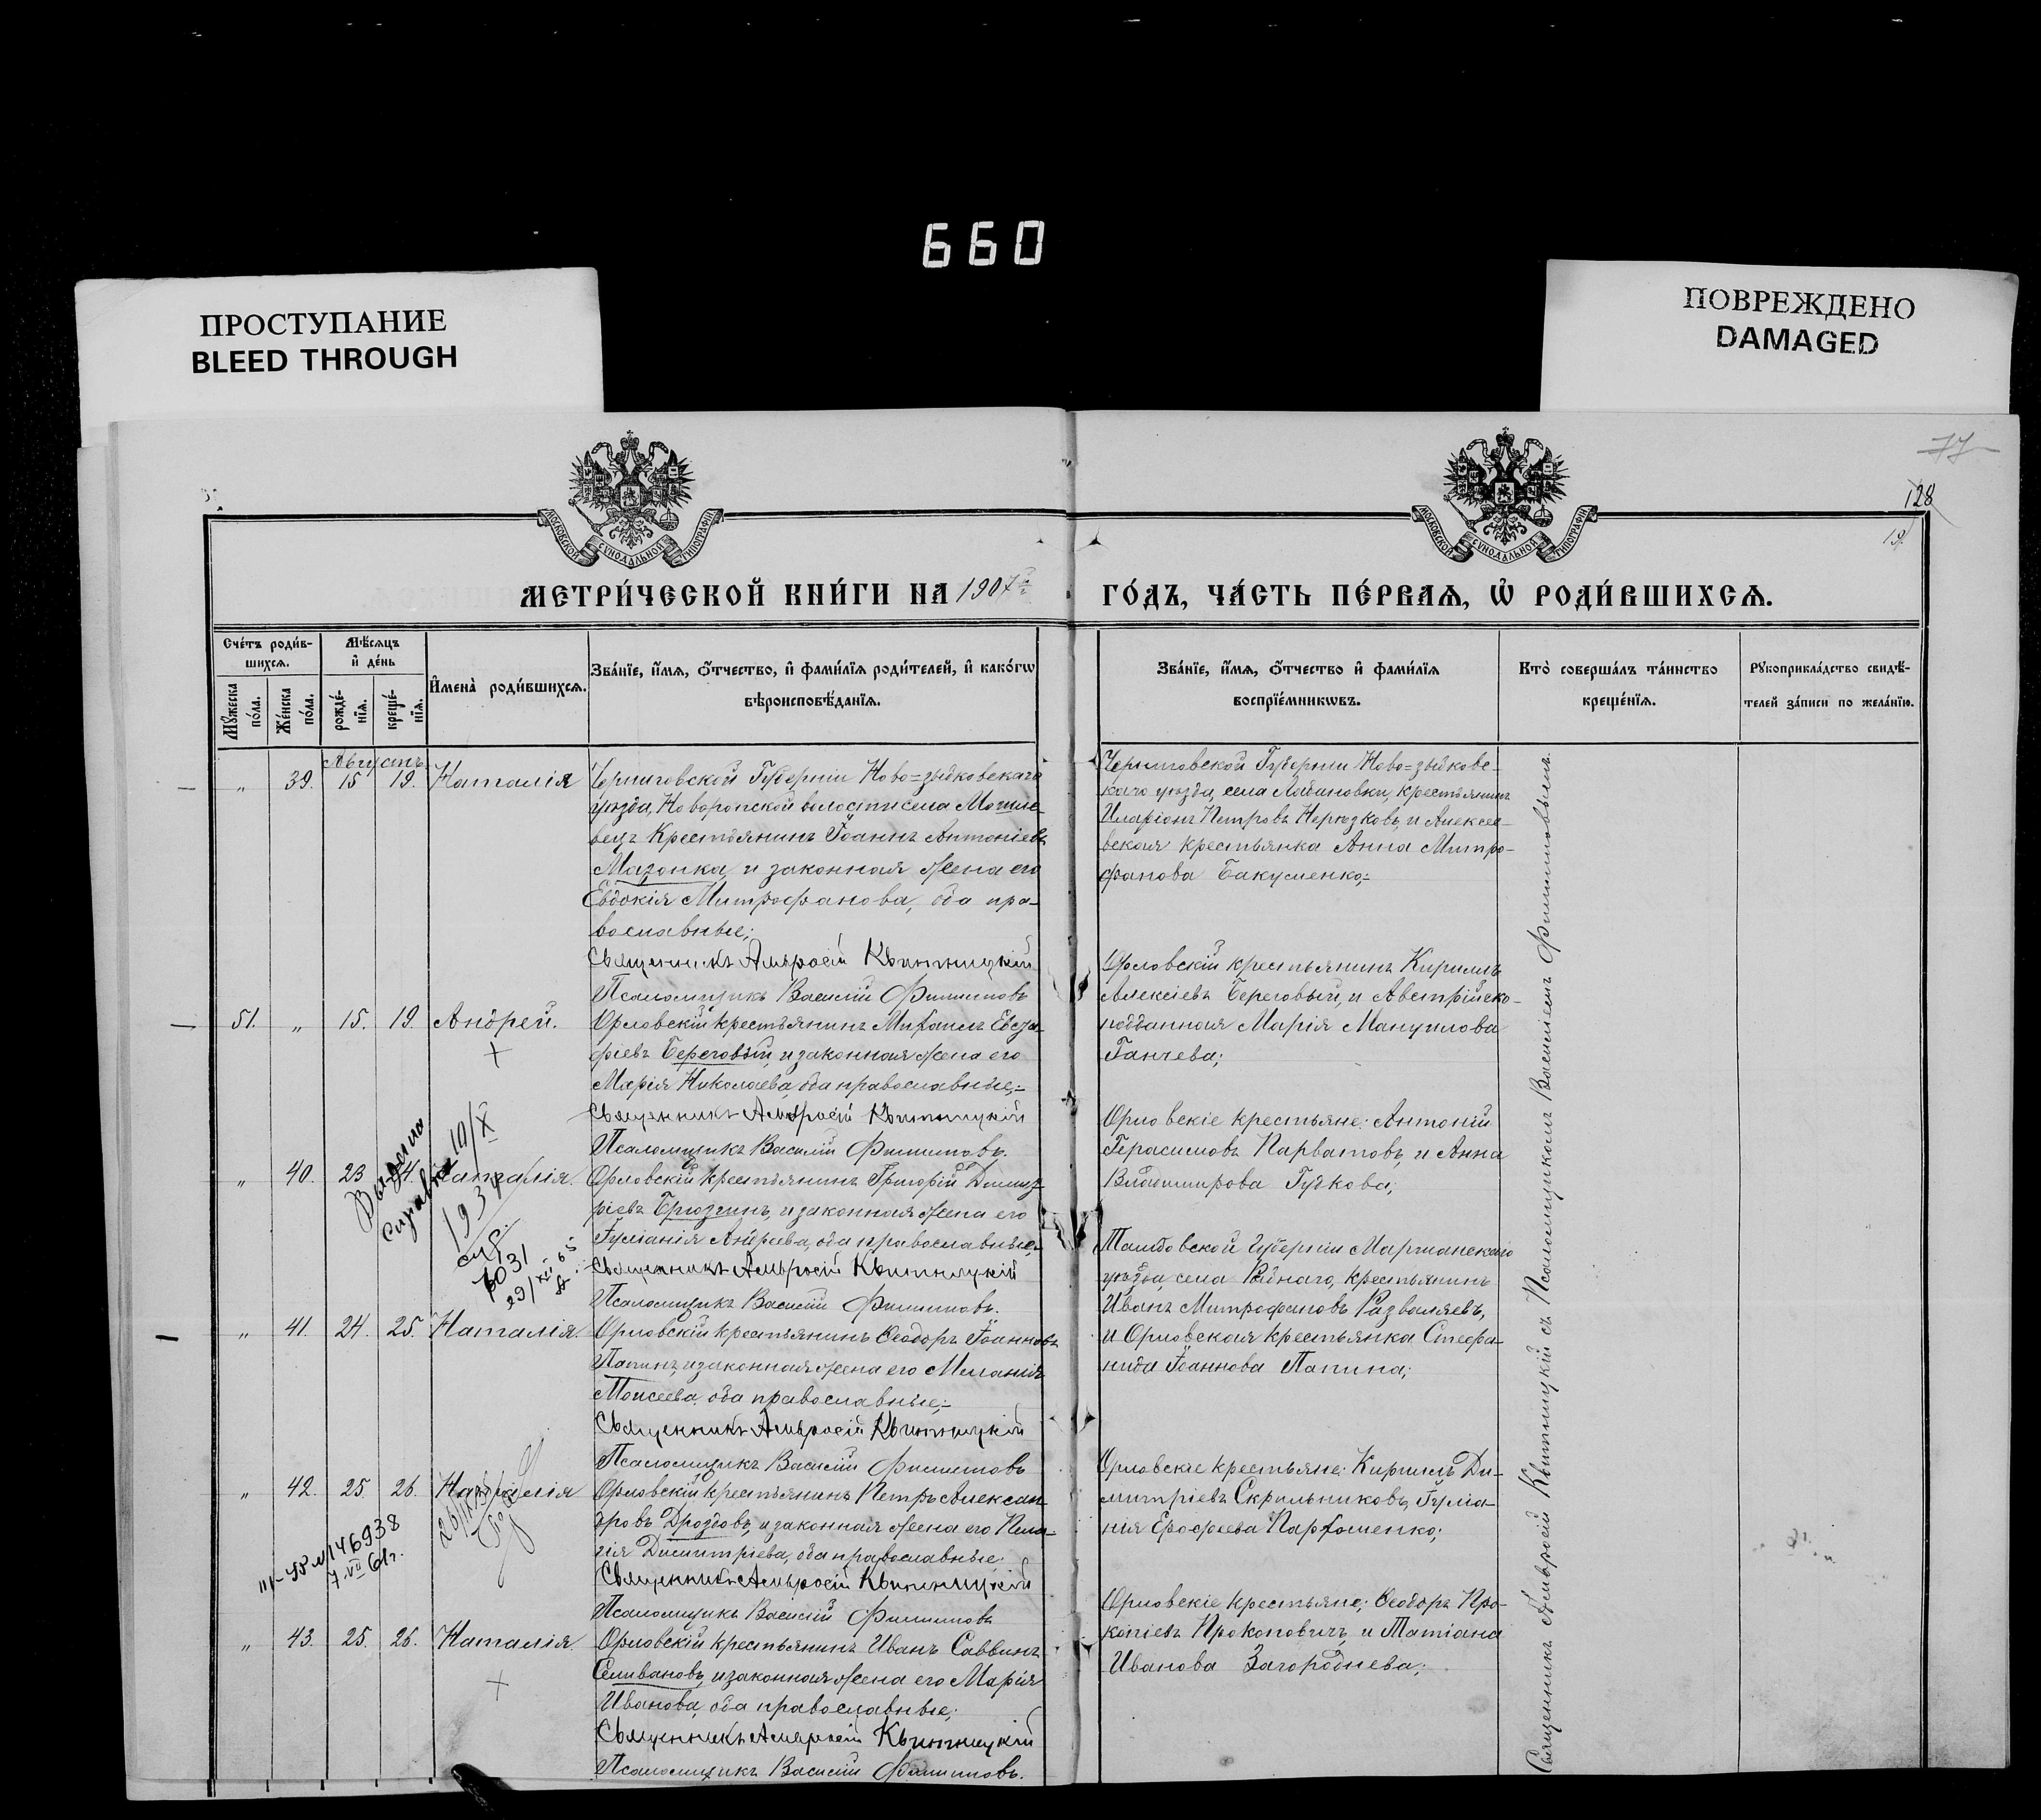 660
ПРОСТУПАНИЕ
BLEED THROUGH
ПОВРЕЖДЕНО
DAMAGED
77
128
19.
МОСКОВСКОЙ СѴНОДАЛЬНОЙ ТИПОГРАФІИ
МОСКОВСКОЙ СѴНОДАЛЬНОЙ ТИПОГРАФІИ
МЕТРИ́ЧЕСКОЙ КНИ́ГИ НА 1907 ГО́ДЪ, ЧА́СТЬ ПЕ́РВАЯ, Ѡ҆ РОДИ́ВШИХСЯ.
Сче́тъ роди́в-
шихся.
Мѣ́сяцъ
и҆ де́нь
Мꙋ́жеска
по́ла.
Же́нска
по́ла.
рожде́-
нїя.
креще́-
нїя.
И҆мена̀ роди́вшихся.
Зва́нїе, и҆́мя, ѻ҆́тчество, и҆ фами́лїя роди́телей, и҆ како́гѡ
вѣроисповѣ́данїя.
Зва́нїе, и҆́мя, ѻ҆́тчество и҆ фами́лїя
воспрїе́мникѡвъ.
Кто̀ соверша́лъ та́инство
креще́нїя.
Рꙋкоприкла́дство свидѣ́-
телей за́писи по жела́нїю.
Августъ
„ 39. 15 19. Наталія
Черниговской Губерніи Ново=зыбковскаго
уѣзда, Новоропской волости села Могиле-
вецъ Крестьянинъ Іоаннъ Антоніевъ
Мазопка, и законная жена его
Евдокія Митрофанова, оба пра-
вославные;
Священникъ Амвросій Квитницкій
Псаломщикъ Василій Филипповъ
Черниговской Губерніи Ново=зыбков-
скаго уѣзда, села крестьянинъ
Иларіонъ Петровъ и Алексѣ-
евская крестьянка Анна Митро-
фанова Бакуменко;
51. „ 15. 19. Андрей.
Орловскій крестьянинъ Михаилъ Евста-
фіевъ Береговый, и законная жена его
Марія Николаева, оба православные;
Священникъ Амвросій Квитницкій
Псаломщикъ Василій Филипповъ.
Орловскій крестьянинъ Кириллъ
Алексіевъ Береговый, и Австрійско-
подданная Марія Мануилова
Ганчева;
„ 40. 23 24. Наталія.
Выдана
справка 19/X
193
6031
29/XII 65
Орловскій крестьянинъ Григорій Димит-
ріевъ Брюзгинъ, и законная жена его
Іуліанія Андреева, оба православные;
Священникъ Амвросій Квитницкій
Псаломщикъ Василій Филипповъ.
Орловскіе крестьяне: Антоній
Герасимовъ Парватовъ, и Анна
Владимирова Гудкова;
„ 41. 24. 25. Наталія.
Орловскій крестьянинъ Ѳеодоръ Іоанновъ
Папинъ, и законная жена его Меланія
Моисеева, оба православные;
Священникъ Амвросій Квитницкій
Псаломщикъ Василій Филипповъ
Тамбовской Губерніи Маршанскаго
уѣзда, села крестьянинъ
Иванъ Митрофановъ Разваляевъ,
и Орловская крестьянка Стефа-
нида Іоаннова Папина;
„ 42. 25. 26. Наталія
146938
7.VII 61г.
Орловскій крестьянинъ Петръ Алексан-
дровъ Дроздовъ, и законная жена его Пела-
гія Димитріева, оба православные;
Священникъ Амвросій Квитницкій
Псаломщикъ Василій Филипповъ
Орловскіе крестьяне: Кириллъ Ди-
митріевъ Скрыльниковъ, Іуліа-
нія Ерофѣева Пархоменко;
„ 43. 25. 26. Наталія
Орловскій крестьянинъ Иванъ Саввинъ
Селивановъ, и законная жена его Марія
Иванова, оба православные;
Священникъ Амвросій Квитницкій
Псаломщикъ Василій Филипповъ.
Орловскіе крестьяне; Ѳеодоръ Про-
копіевъ Прокоповичъ, и Татіана
Иванова Загороднева;
Священникъ Амвросій Квитницкій съ Псаломщикомъ Василіемъ Филипповымъ.